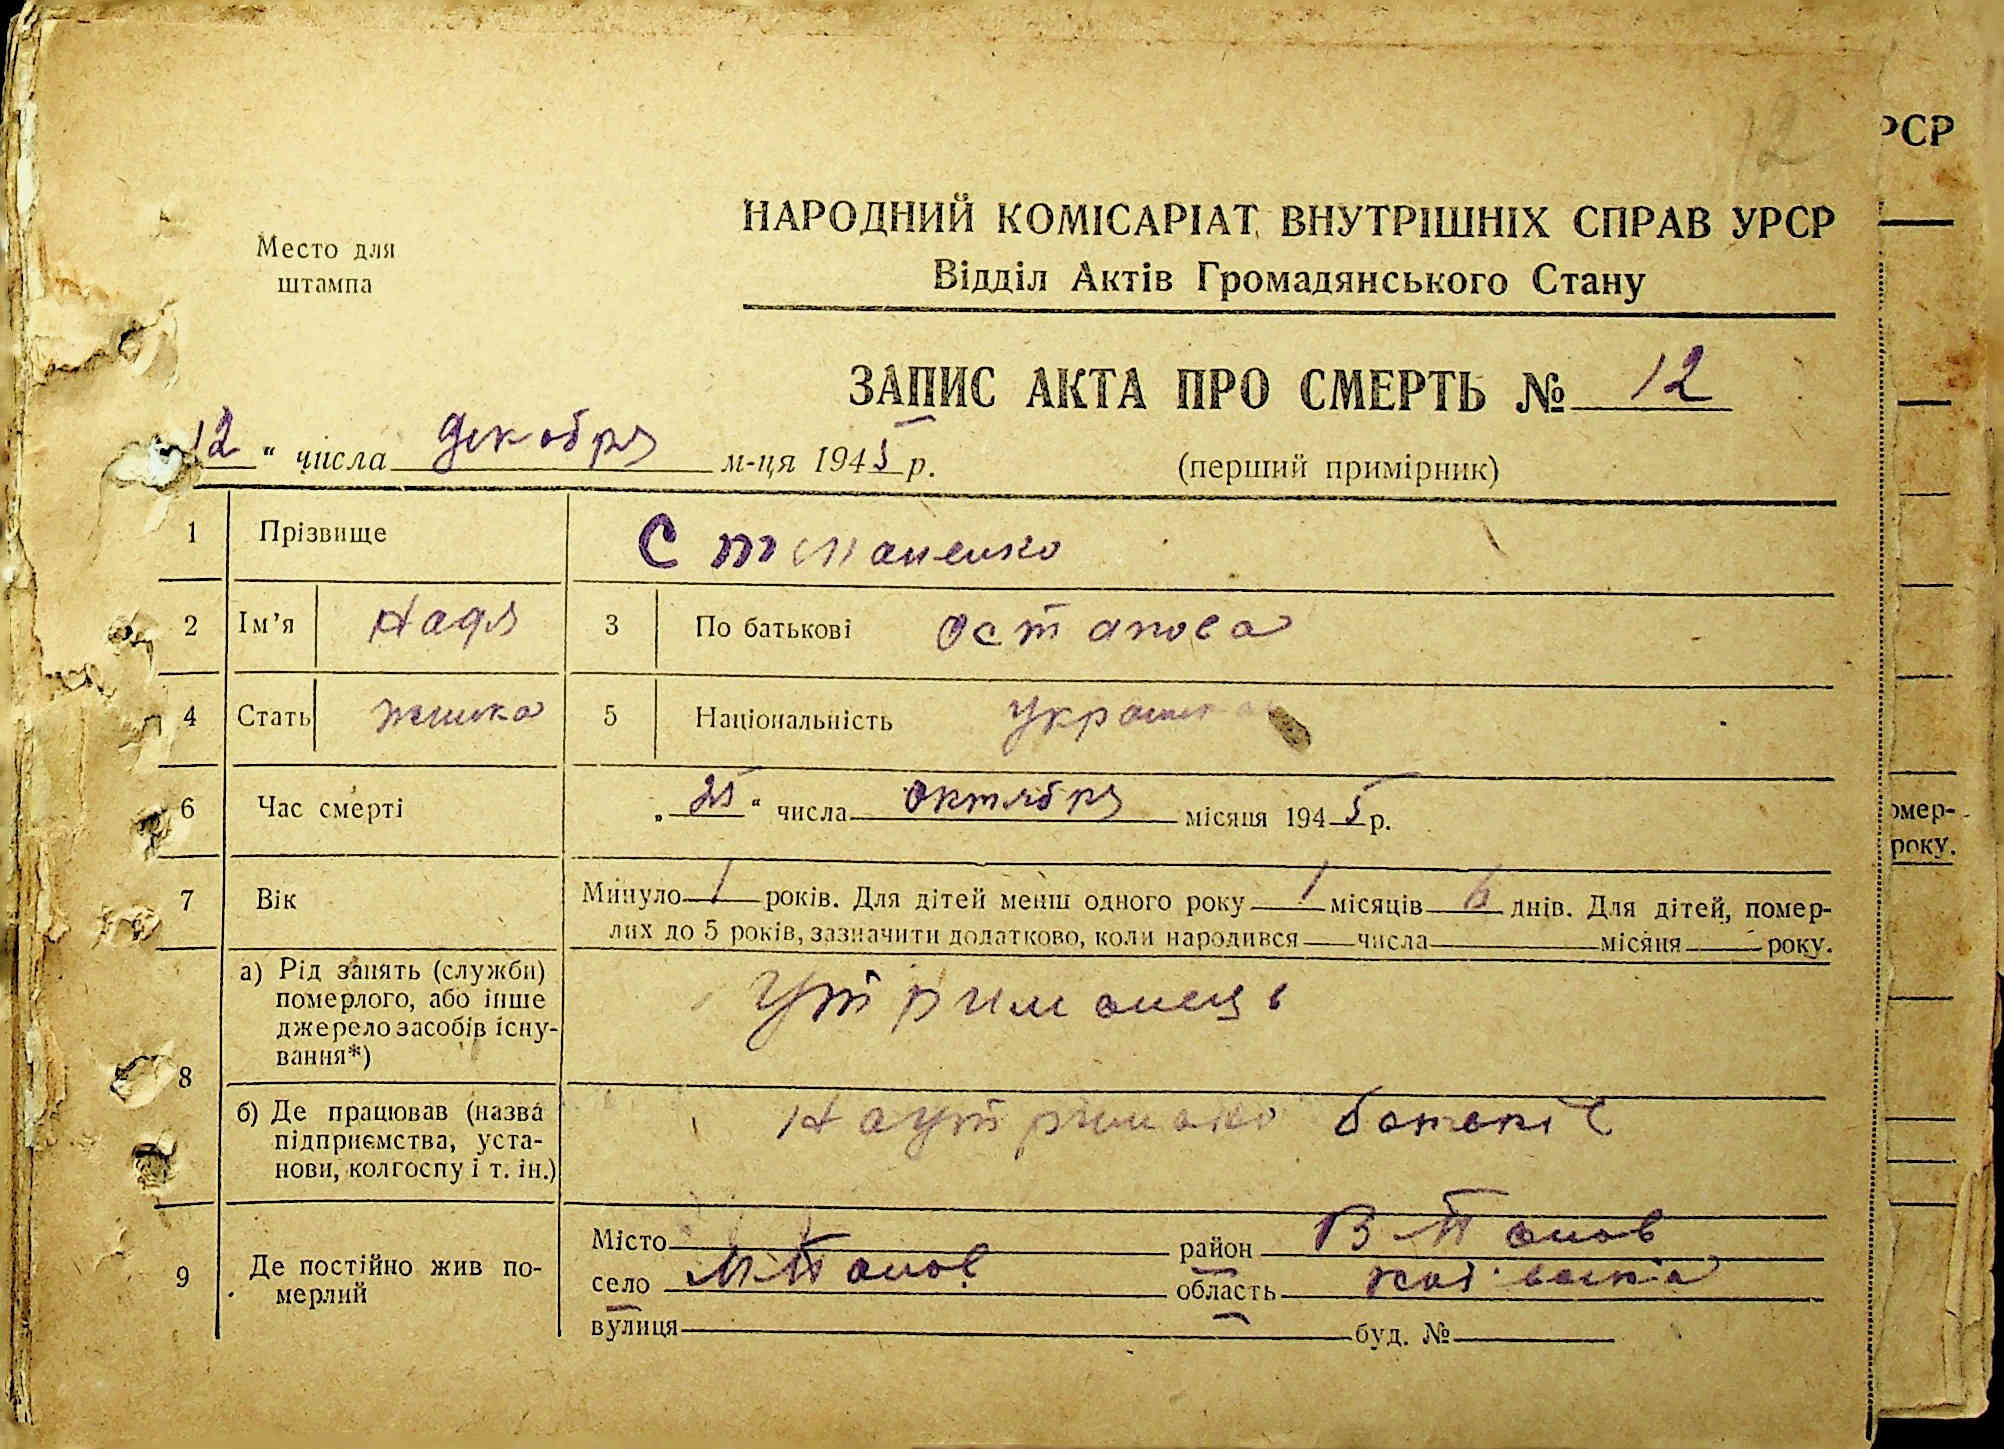 12
РСР
НАРОДНИЙ КОМІСАРІАТ ВНУТРІШНІХ СПРАВ УРСР
Відділ Актів Громадянського Стану
Место для
штампа
ЗАПИС АКТА ПРО СМЕРТЬ № 12
12 " числа декабря м-ця 1945 р.
(перший примірник)
1 Прізвище Степаненко
2 Ім'я Надя 3 По батькові Остапова
4 Стать женска 5 Національність Українка
6 Час смерті „ 25 " числа Октября місяця 1945 р.
7 Вік Минуло 1 років. Для дітей менш одного року 1 місяців 6 днів. Для дітей, помер-
лих до 5 років, зазначити додатково, коли народився числа місяця року.
омер-
року.
8 а) Рід занять (служби)
померлого, або інше
джерело засобів існу-
вання*)
Утриманець
б) Де працював (назва
підприємства, уста-
нови, колгоспу і т. ін.)
На утриманні батьків
9 Де постійно жив по-
мерлий
Місто район
село область
вулиця буд. №